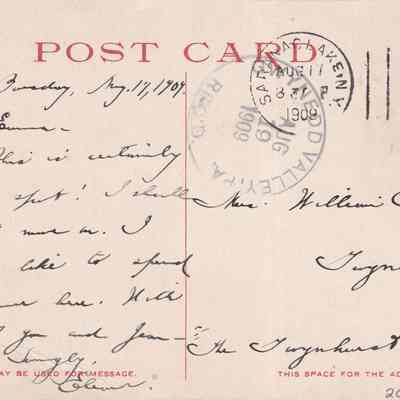 POST CARD
Tuesday, Aug. 17, 1909.
Emma -
This is certainly
spot! I shall
I
like to spend
here. With
you and Jean -
Lovingly,
SARANAC LAKE. N.Y.
AUG 17
1909
WYNEDD VALLEY, PA.
AUG
19
1909
REC'D.
Mrs. William C
Gwyn
The Gwynhurst
AY BE USED FOR MESSAGE.
THIS SPACE FOR THE AD
20